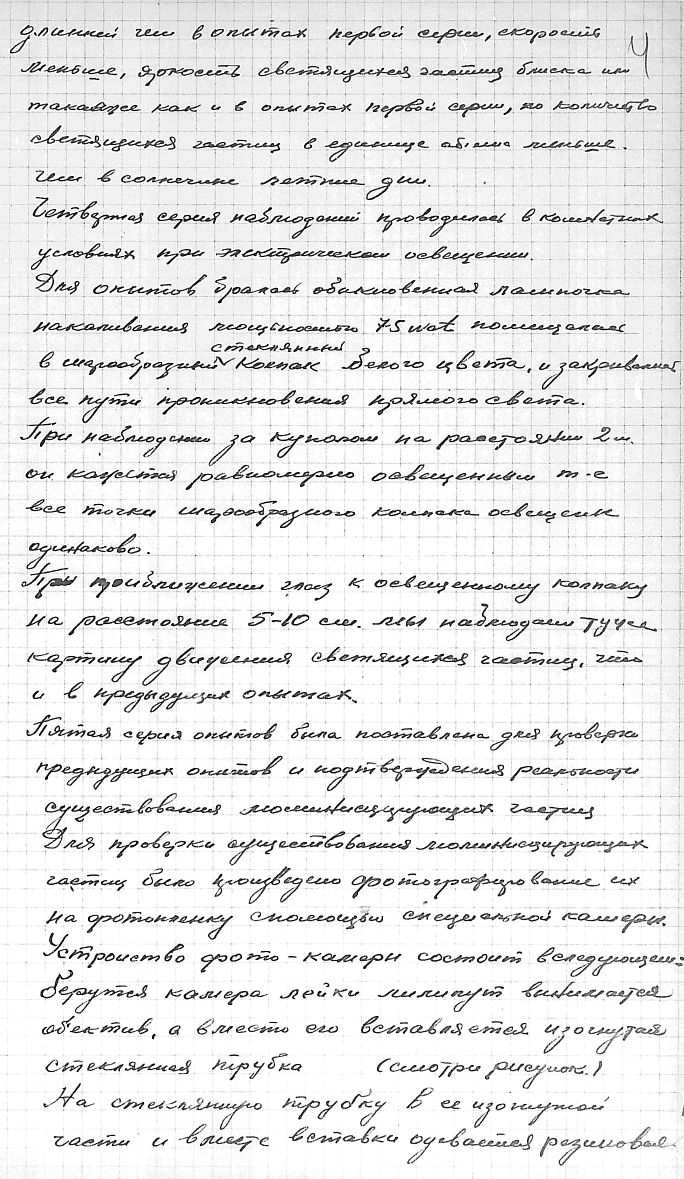 4
длинней чем в опытах первой серии, скорость
меньше, яркость светящихся частиц блиска или
такаяже как и в опытах первой серии, но количество
светящихся частиц в единице обëма меньше.
чем в солнечные летние дни.
Четвертая серия наблюдений проводилась в комнатных
условиях при электрическом освещении.
Для опытов бралась обыкновенная лампочка
накаливания мощностью 75 wat помещалась
стеклянный
в шарообразный колпак белого цвета, и закривались
все пути проникновения прямого света.
При наблюдении за куполом на расстоянии 2 м.
он кажется равномерно освещенным т-е
все точки шарообразного колпака освещены
одинаково.
При приближении глаз к освещенному колпаку
на расстояние 5-10 см. мы наблюдаем туже
картину движения светящихся частиц, что
и в предыдущих опытах.
Пятая серия опытов была поставлена для проверки
предыдущих опытов и подтверждения реальности
существования люминисцирующих частиц
Для проверки существования люминисцирующих
частиц было произведено фотографирование их
на фотопленку спомощью специальной камеры.
Устроиство фото-камеры состоит вследующем:
берутся камера лейки лилипут вынимается
обектив, а вместо его вставляется изогнутая
стеклянная трубка (смотри рисунок.)
На стеклянную трубку в ее изогнутой
части и вместе вставки одевается резиновая